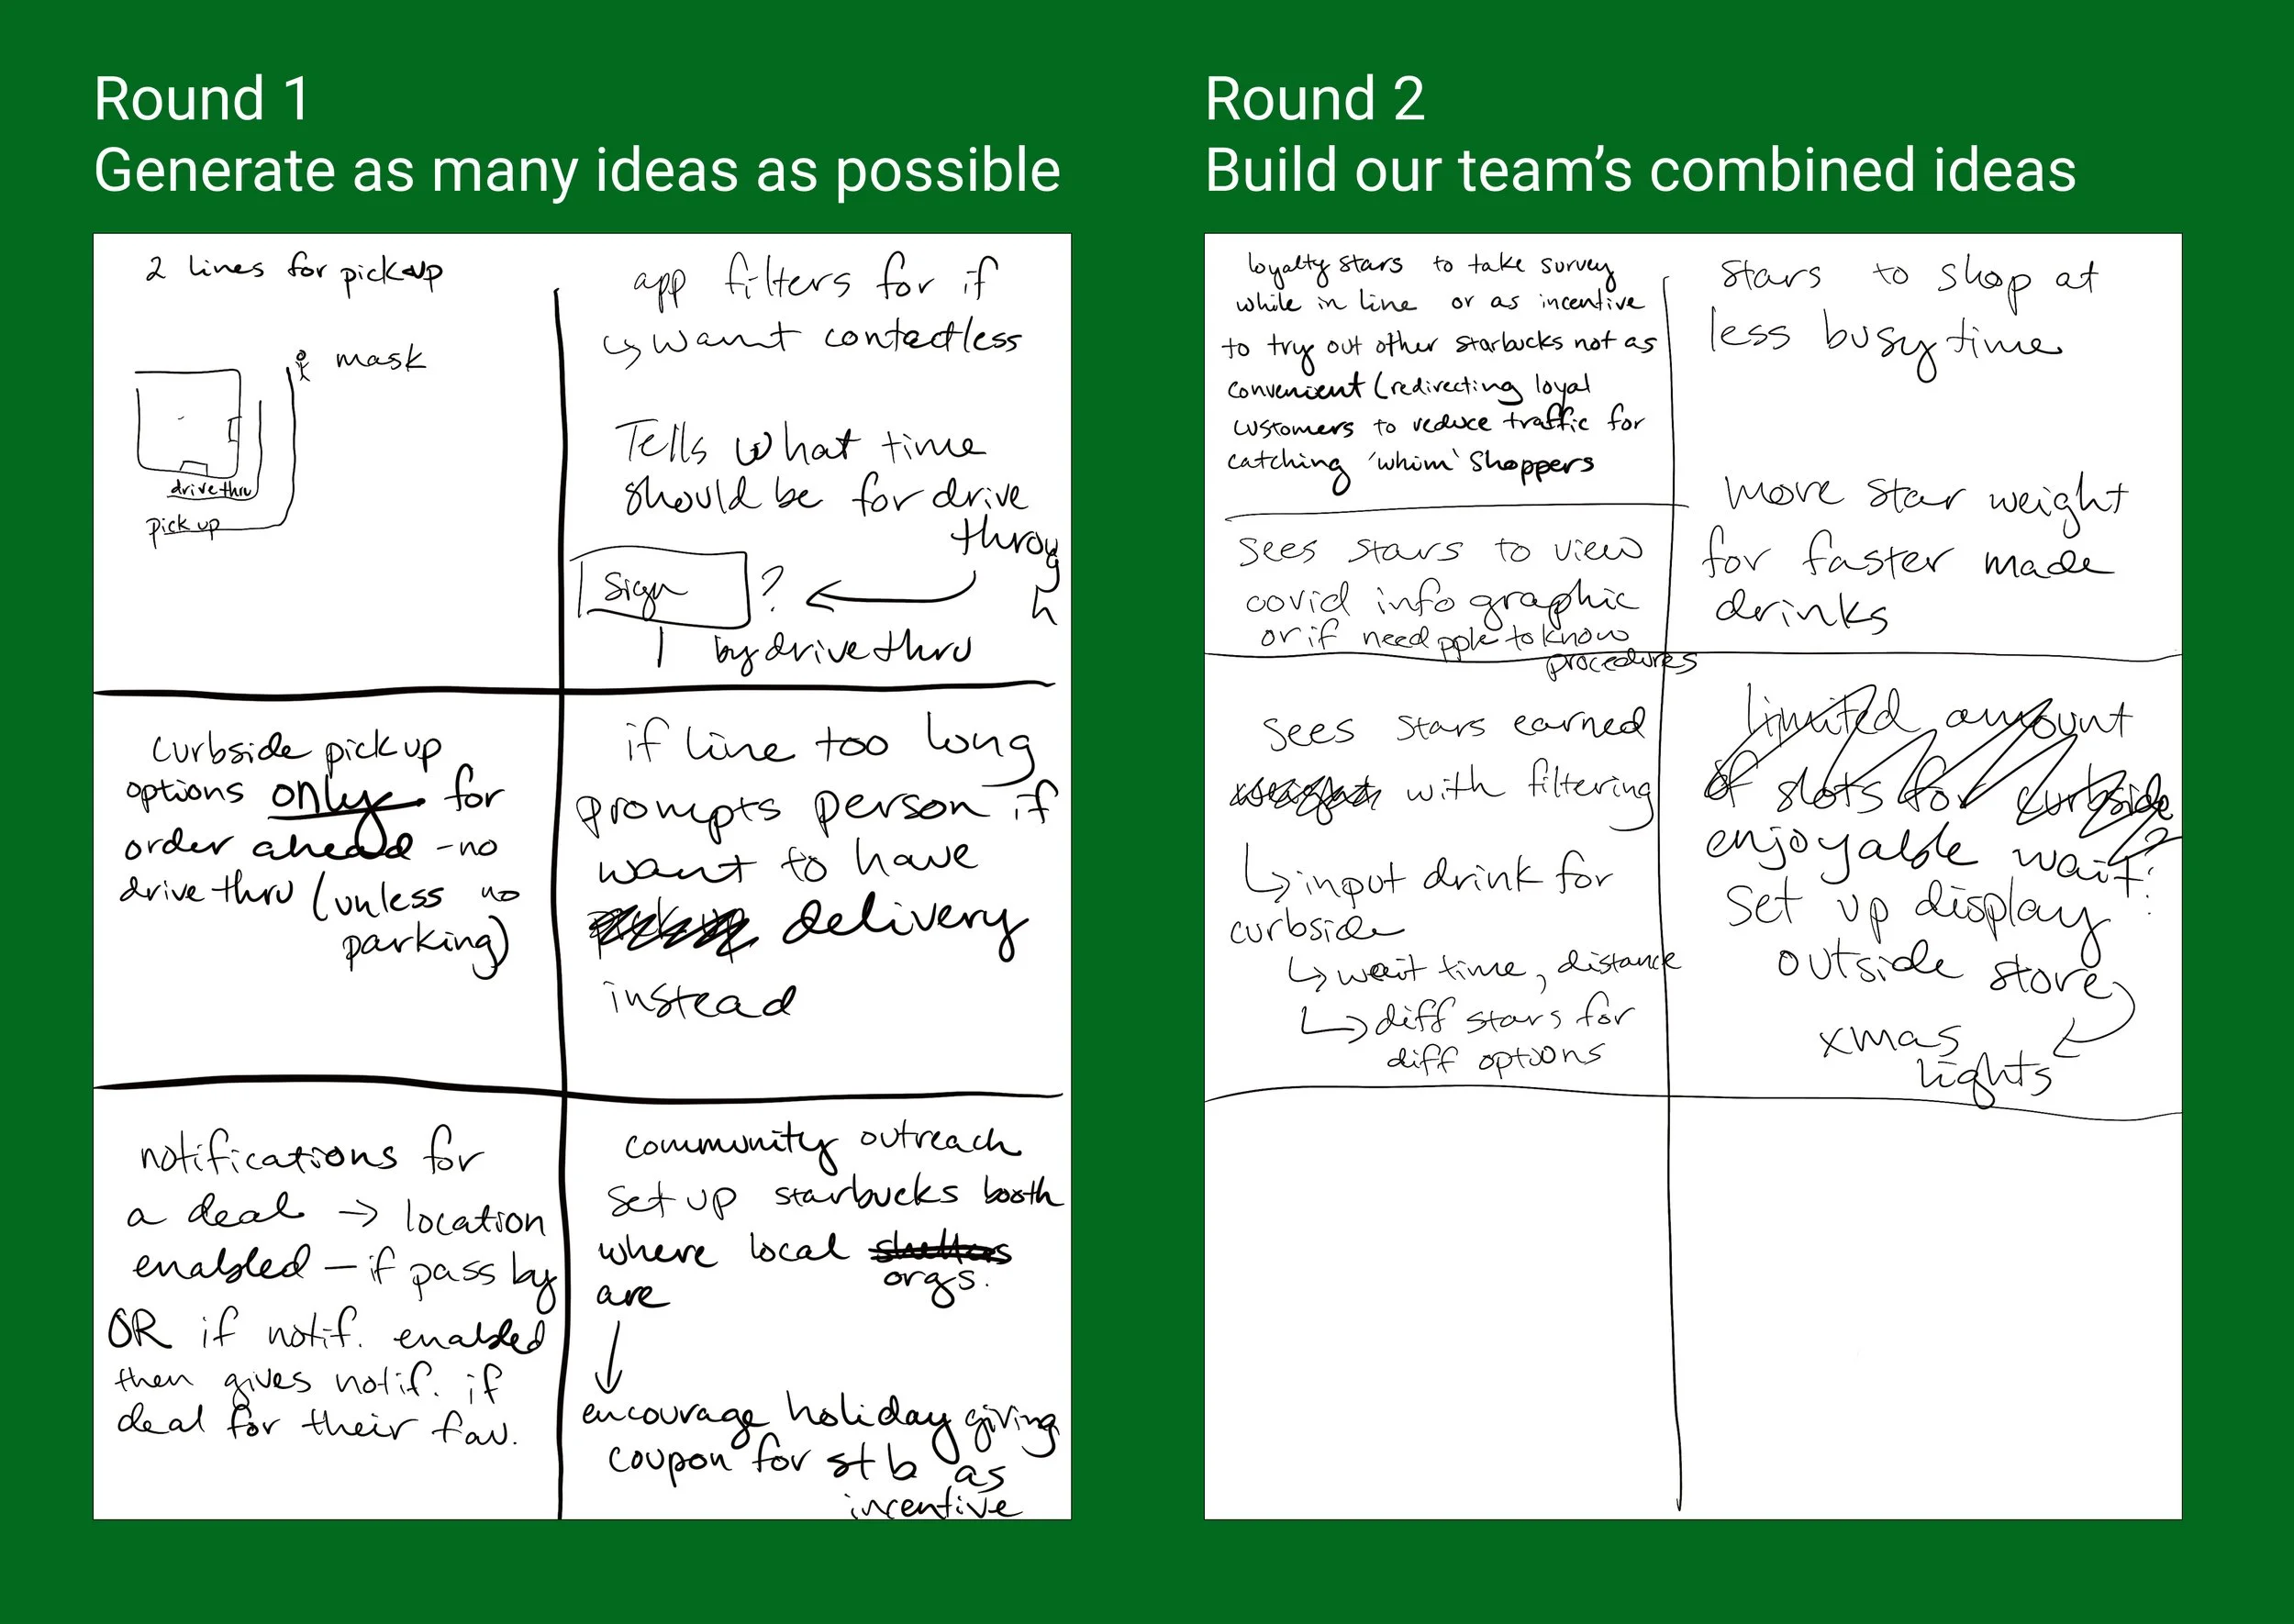 Round 1
Generate as many ideas as possible
2 lines for pickup
mask
drive thru
pick up
app filters for if
want contactless
Tells what time
should be for drive
throug
h
Sign ?
by drive thru
curbside pick up
options only for
order ahead - no
drive thru (unless no
parking)
if line too long
prompts person if
want to have
delivery
instead
notifications for
a deal → location
enabled — if pass by
OR if notif. enabled
then gives notif. if
deal for their fav.
community outreach
set up starbucks booth
where local shelters
orgs.
are
encourage holiday giving
coupon for stb as
incentive
Round 2
Build our team's combined ideas
loyalty stars to take survey
while in line or as incentive
to try out other starbucks not as
convenient (redirecting loyal
customers to reduce traffic for
catching 'whim' shoppers
sees stars to view
covid info graphic
or if need pple to know
procedures
stars to shop at
less busy time
more star weight
for faster made
drinks
sees stars earned
with filtering
input drink for
curbside
wait time, distance
diff stars for
diff options
limited amount
of slots for curbside
enjoyable wait?
set up display
outside store
xmas
lights